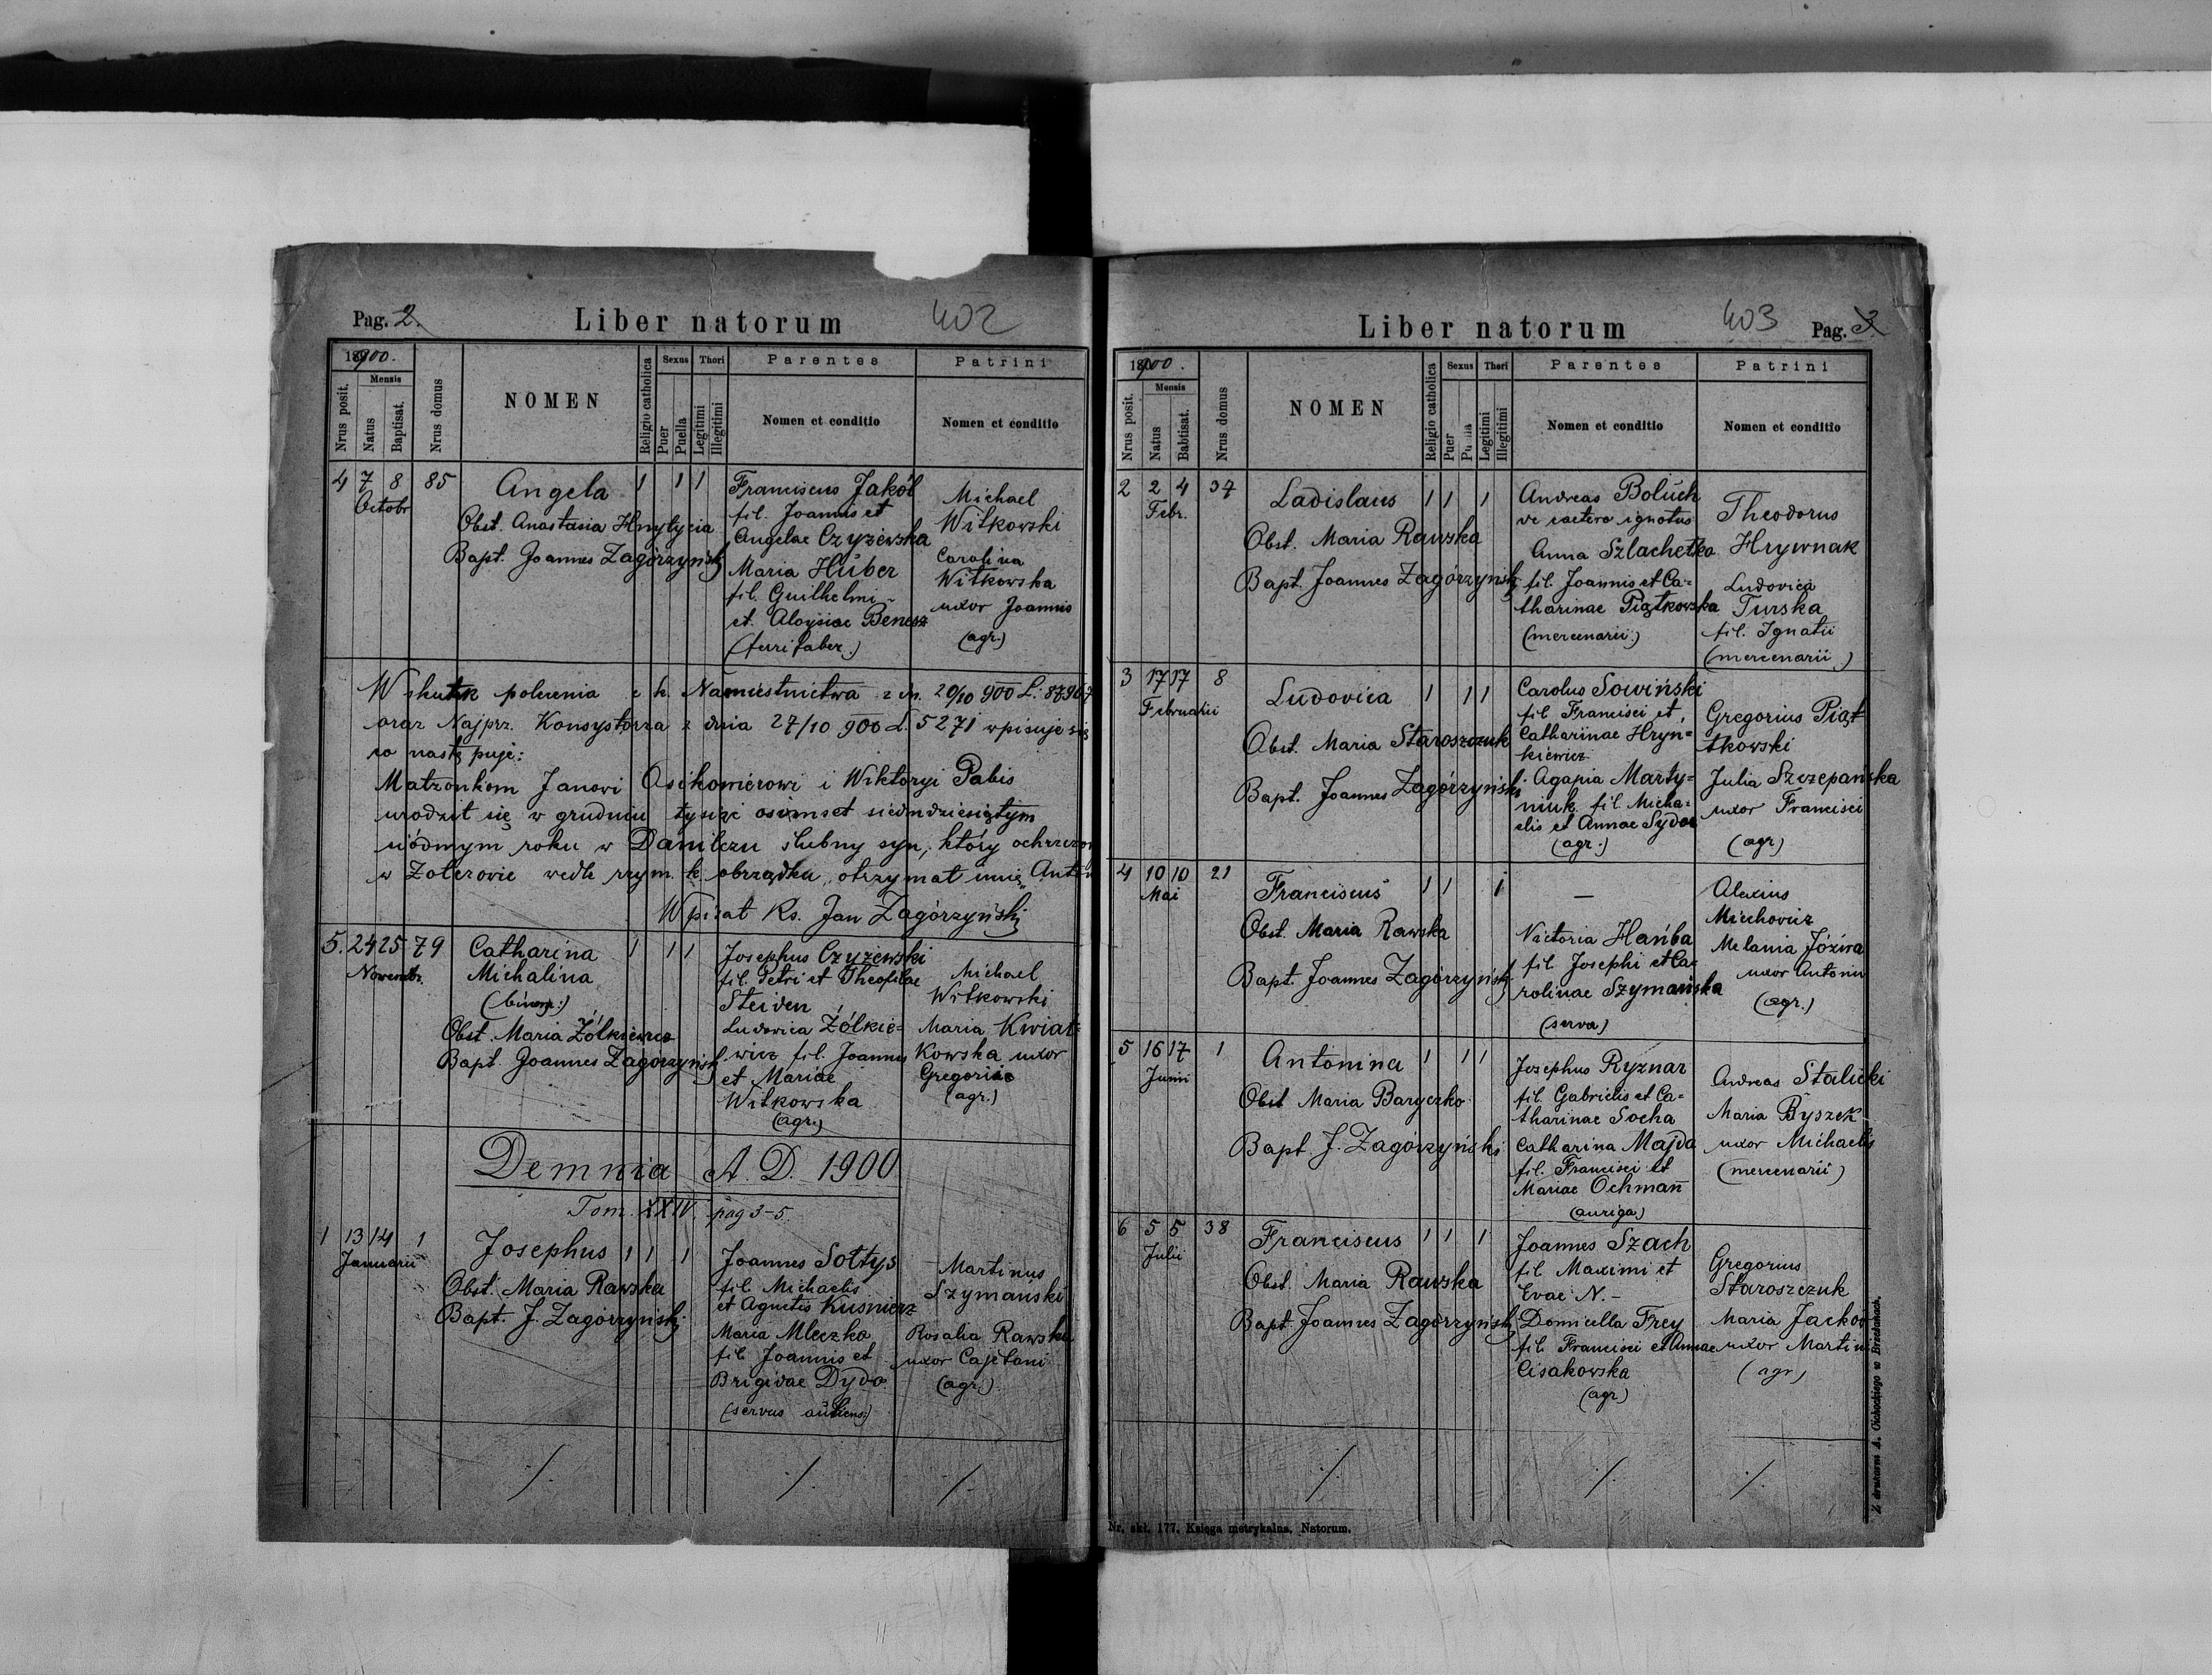 Pag. 2.
Liber natorum
402
1900.
Nrus posit.
Mensis
Natus
Baptisat.
Nrus domus
NOMEN
Religio catholica
Sexus
Puer
Puella
Thori
Legitimi
Illegitimi
Parentes
Nomen et conditio
Patrini
Nomen et conditio
4 7 8 85
Octobr
Angela 1 1 1
Obst. Anastasia Hnytycia
Bapt. Joannes Zagórzyński
Franciscus Jakół
fil. Joannis et
Angelae Czyżewska
Maria Hüber
fil. Guilhelmi
et Aloysiae Benesz
(ferri faber.)
Michael
Witkowski
Carolina
Witkowska
uxor Joannis
(agr.)
Wskutek polecenia c. k. Namiestnictwa z dn. 20/10 900 L.
oraz Najprz. Konsystorza z dnia 27/10 900 L. 5271 wpisuje się
co następuje:
Małżonkom Janowi i Wiktoryi Pabis
urodził się w grudniu tysiąc ośmset siedmdziesiątym
siódmym roku w Danilczu ślubny syn, który ochrzczon
w Żołczowie wedle rzym. k. obrządku, otrzymał imię
Wpisał Ks. Jan Zagórzyński
5. 24 25 79
Novembr.
Catharina 1 1 1
Michalina
Obst. Maria Żółkiewicz
Bapt. Joannes Zagórzyński
Josephus Czyżewski
fil. Petri et Theofilae
Steiden
Ludovica Żółkie-
wicz fil. Joannis
et Mariae
Witkowska
(agr.)
Michael
Witkowski
Maria Kwiat-
kowska uxor
Gregorii
(agr.)
Demnia A. D. 1900
Tom. XXIV. pag 3-5.
1 13 14 1
Januarii
Josephus 1 1 1
Obst. Maria Rawska
Bapt. J. Zagórzyński
Joannes Sołtys
fil. Michaelis
et Agnetis Kusnierz
Maria Mleczko
fil. Joannis et
Brigidae Dydo
(servus)
Martinus
Szymański
Rosalia Rawska
uxor Cajetani
(agr.)
Liber natorum
403
Pag. 3
1900.
Nrus posit.
Mensis
Natus
Babtisat.
Nrus domus
NOMEN
Religio catholica
Sexus
Puer
Puella
Thori
Legitimi
Illegitimi
Parentes
Nomen et conditio
Patrini
Nomen et conditio
2 2 4 37
Febr.
Ladislaus 1 1 1
Obst. Maria Rawska
Bapt. Joannes Zagórzyński
Andreas Boluch
de caetero ignotus
Anna Szlachetko
fil. Joannis et Ca-
tharinae Piątkowska
(mercenarii.)
Theodorus
Hrywnak
Ludovica
Turska
fil. Ignatii
(mercenarii.)
3 17 17 8
Februarii
Ludovica 1 1 1
Obst. Maria Staroszczuk
Bapt. Joannes Zagórzyński
Carolus Sowiński
fil Francisci et
Catharinae Hryn-
kiewicz
Agapia Marty-
niuk fil. Micha-
elis et Annae Sydor
(agr.)
Gregorius Piąt
tkowski
Julia Szczepańska
uxor Francisci
(agr)
4 10 10 21
Mai
Franciscus 1 1 1
Obst. Maria Rawska
Bapt. Joannes Zagórzyński
—
Victoria Hańba
fil. Josephi et Ca-
rolinae Szymańska
(serva)
Alexius
Miechowicz
Melania
uxor Antonii
(agr.)
5 16 17 1
Junii
Antonina 1 1 1
Obst Maria Baryczko
Bapt J. Zagórzyński
Josephus Ryznar
fil. Gabrielis et Ca-
tharinae Socha
Catharina Majda
fil. Francisci et
Mariae Ochman
(auriga)
Andreas Stalicki
Maria Byszek
uxor Michaelis
(mercenarii)
6 5 5 38
Julii
Franciscus 1 1 1
Obst. Maria Rawska
Bapt. Joannes Zagórzyński
Joannes Szach
fil Maximi et
Evae N. -
Domicella Frey
fil Francisci et Annae
Cisakowska
(agr)
Gregorius
Staroszczuk
Maria Jackow
uxor Martini
(agr)
Nr. skł. 177. Księga metrykalna. Natorum.
Z drukarni A. Cichockiego w Brzeżanach.